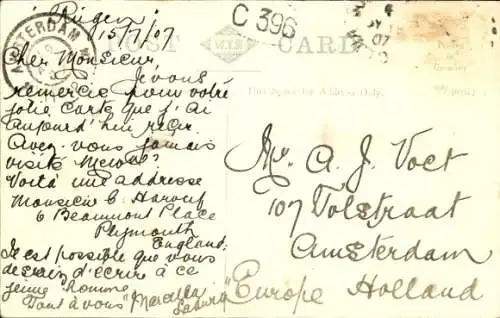 15/7/07
C 396
AMSTERDAM
POST CARD
Cher Monsieur
Je vous
remercie pour votre
jolie carte que j'ai
aujourd'hui reçu.
Avez-vous jamais
visité
Voilà une adresse
Monsieur
6 Beaumont Place
Plymouth
England.
Il est possible que vous
d'écrire à ce
jeune homme
Tout à vous
This Space for Address Only.
Mr. A. J. Voet
107 Tolstraat
Amsterdam
Europe Holland